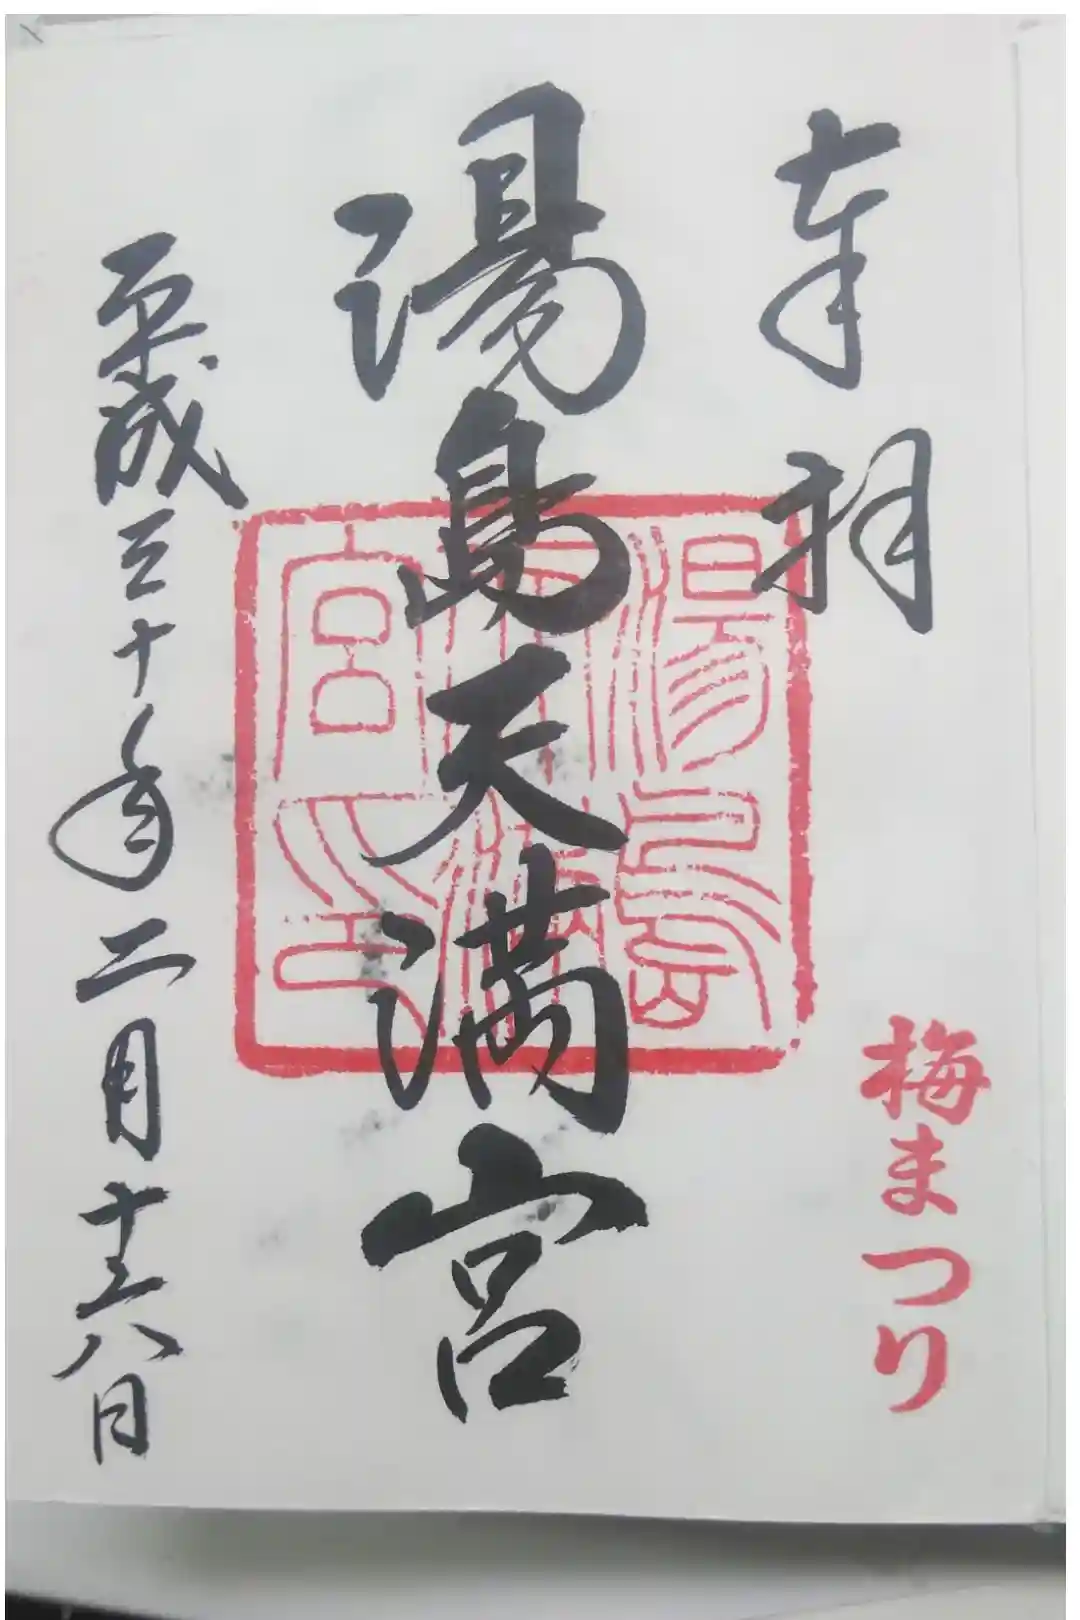 奉拝
梅まつり
湯島天満宮
湯島
天満
宮印
平成三十年二月十八日